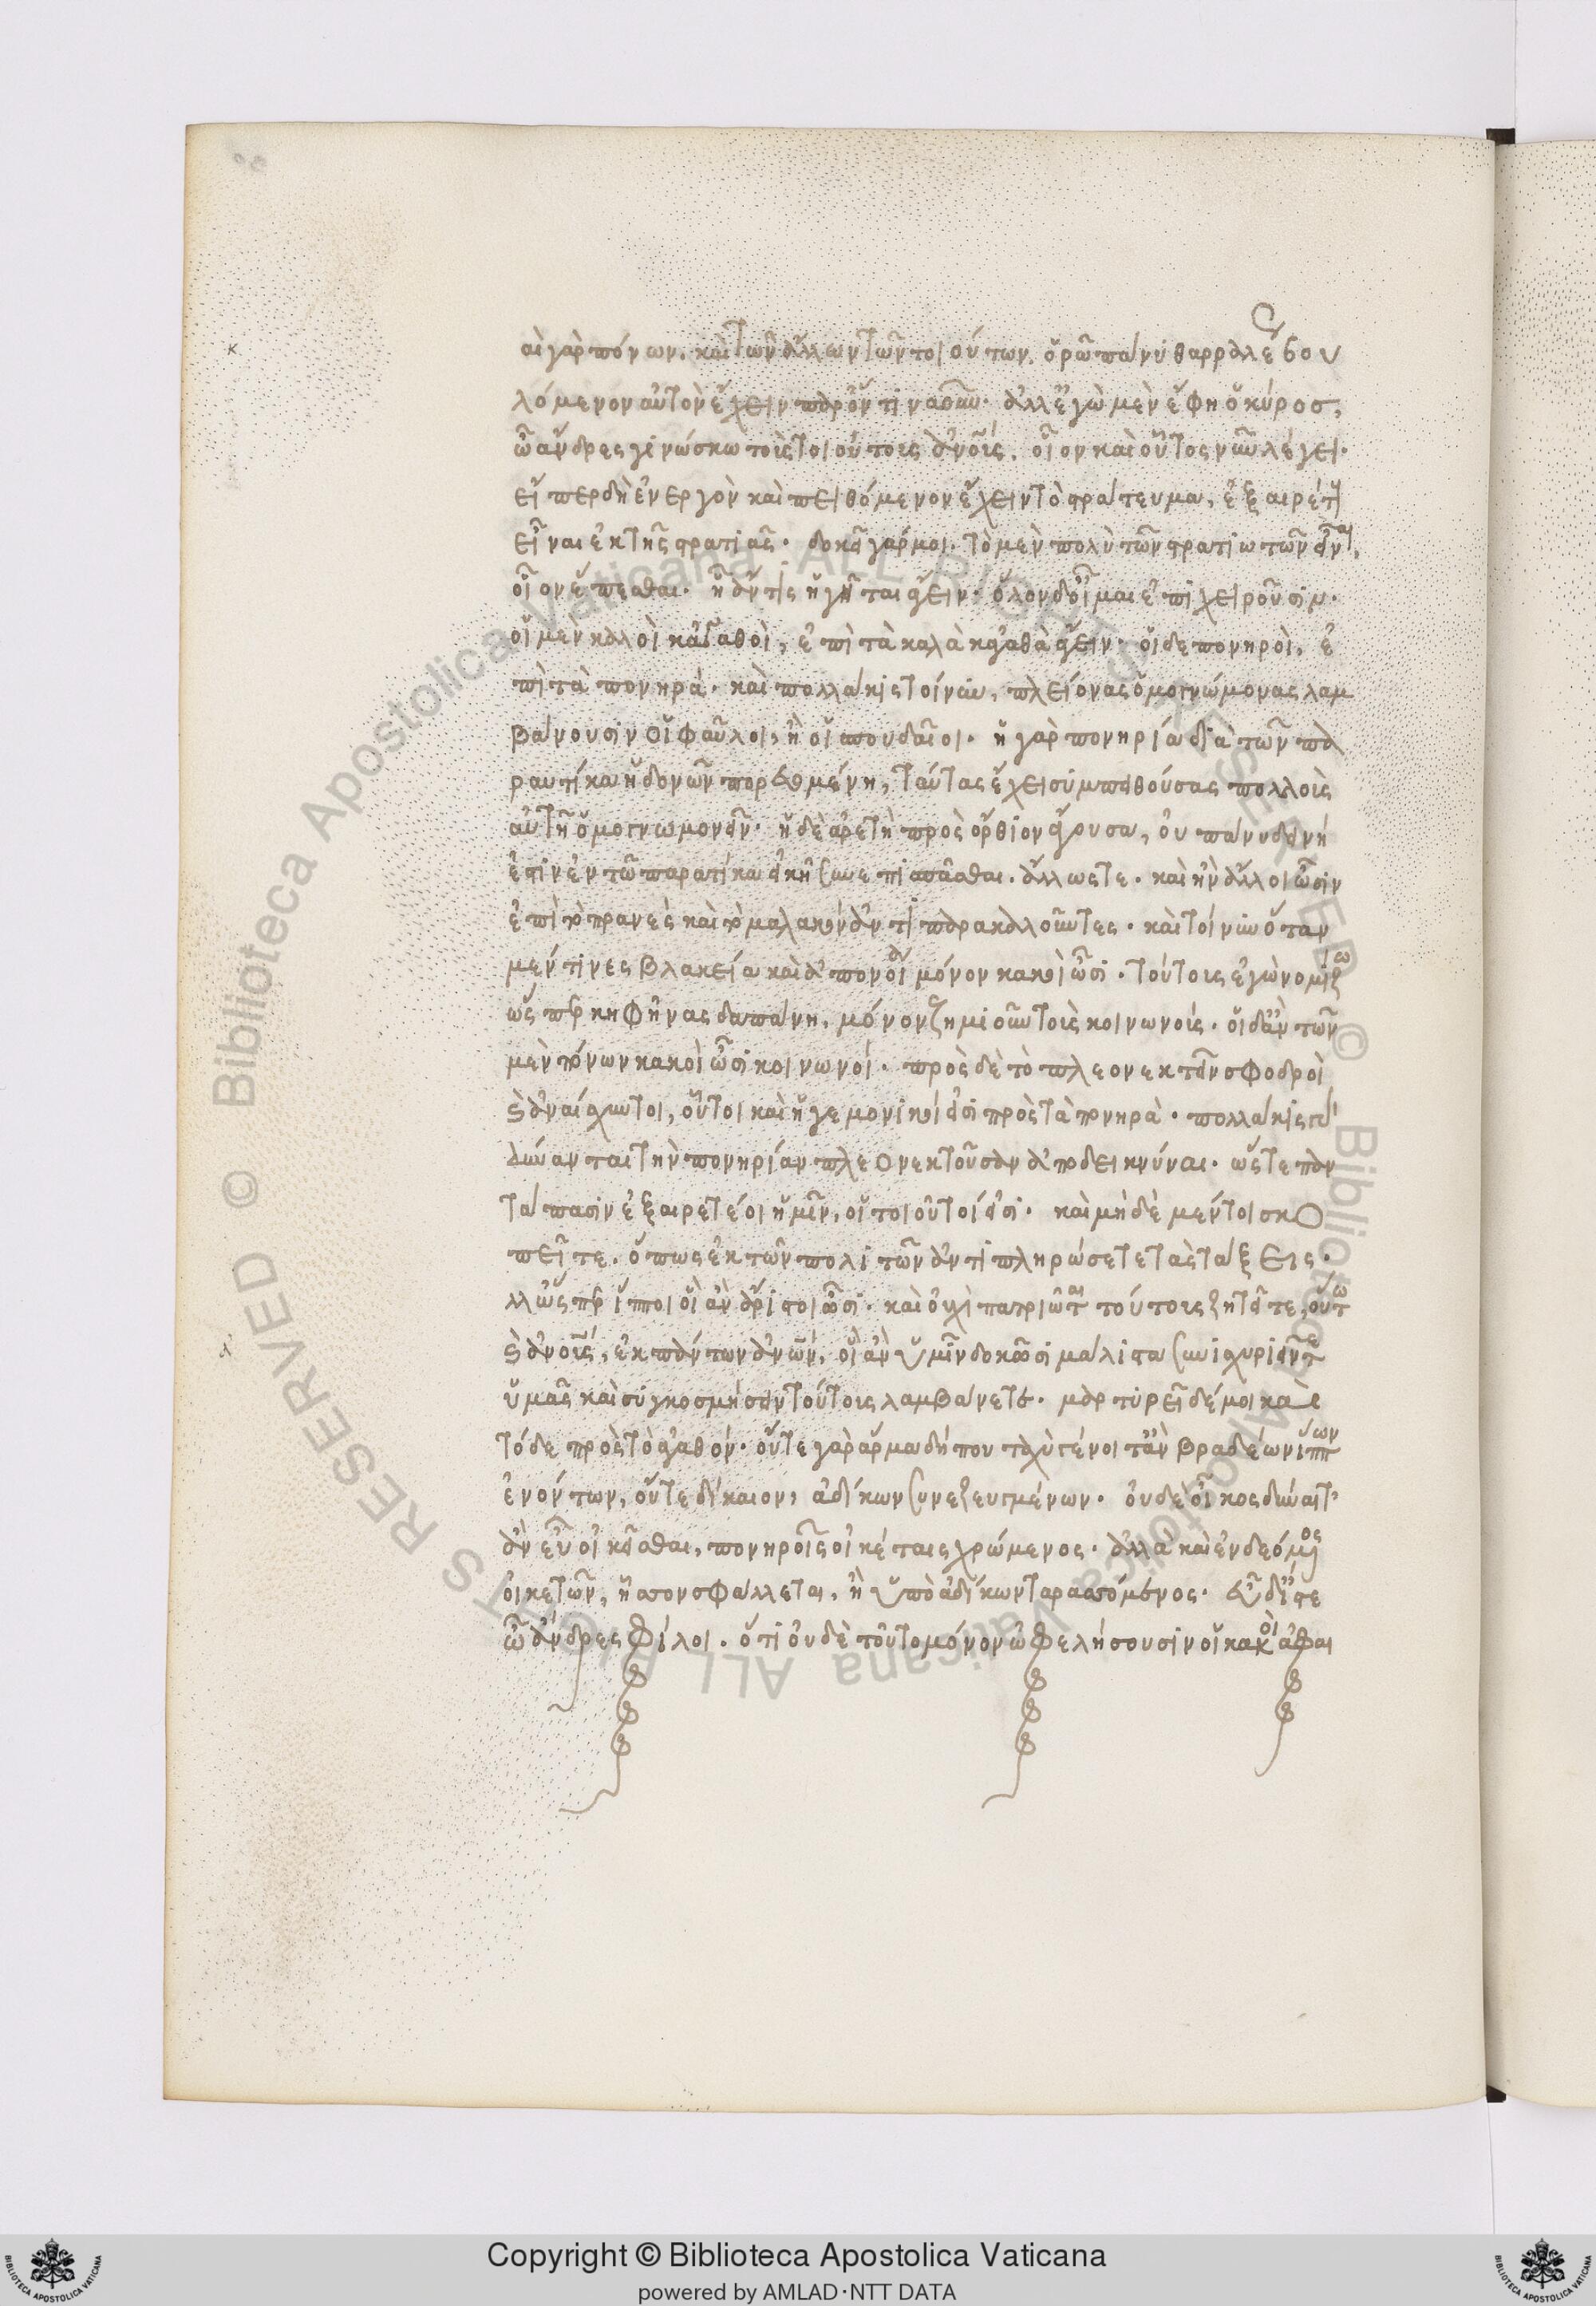 αἱ γὰρ πόνων. καὶ τῶν ἄλλων τῶν τοιούτων. ὁρῶ πάνυ θαρραλέως βου
λόμενον αὐτὸν ἔχειν παρόντινασοῦν. ἀλλ' ἐγὼ μὲν ἔφη ὁ κύρος,
ὦ ἄνδρες γινώσκω τοὶς τοιούτοις ἀνοῖς. οἷον καὶ οὗτος νῦν λέγει.
εἴπερ δὴ ἐνεργὸν καὶ πειθόμενον ἔχειν τὸ στράτευμα, ἐξαιρέτη
εἶναι ἐκ τῆς στρατιᾶς. δοκεῖ γάρ μοι. τὸ μὲν πολὺ τῶν στρατιωτῶν εἶναι,
οἷον ἕπεσθαι. ᾗ ἄν τις ἡγῆται ἄγειν. ἄγειν δ' οἶμαι ἐπιχειροῦσιν.
οἱ μὲν καλοὶ κἀγαθοὶ, ἐπὶ τὰ καλὰ κἀγαθὰ ἄγειν. οἱ δε πονηροὶ, ἐ
πὶ τὰ πονηρά. καὶ πολλάκις τοίνυν, πλείονας ὁμογνώμονας λαμ
βάνουσιν οἱ φαῦλοι, ἢ οἱ σπουδαῖοι. ἡ γὰρ πονηρία διὰ τῶν πα
ραυτίκα ἡδονῶν πορευομένη, ταύτας ἔχει συμπειθούσας πολλοὶς
αὐτῆ ὁμογνωμονεῖν. ἡ δὲ ἀρετὴ πρὸς ὄρθιον ἄγουσα, οὐ πάνυ δεινή
ἐστιν ἐν τῶ παραυτίκα εἰκῆ συνεπισπᾶσθαι. ἄλλως τε. καὶ ἢν ἄλλοι ὦσιν
ἐπὶ τὸ πρανὲς καὶ τὸ μαλακὸν ἀντιπαρακαλοῦντες. καὶ τοίνυν ὅταν
μέν τινες βλακεία καὶ ἀπονοία μόνον κακοὶ ὦσι. τούτους ἐγὼ νομίζω
ὥσπερ κηφῆνας δαπάνη, μόνον ζημιοῦν τοὶς κοινωνοίς. οἱ δ' ἂν τῶν
μὲν πόνων κακοὶ ὦσι κοινωνοί. πρὸς δὲ τὸ πλεονεκτεῖν σφοδροὶ
καὶ ἀναίσχυντοι, οὗτοι καὶ ἡγεμονικοί εἰσι πρὸς τὰ πονηρὰ. πολλάκις γὰρ
δύνανται τὴν πονηρίαν πλεονεκτοῦσαν ἀποδεικνύναι. ὥστε παν
τάπασιν ἐξαιρετέοι ἡμῖν, οἱ τοιοῦτοί εἰσι. καὶ μὴ δὲ μέντοι σκο
πεῖτε. ὅπως ἐκ τῶν πολιτῶν ἀντιπληρώσετε τὰς τάξεις.
ἀλλ' ὥσπερ ἵπποι οἳ ἂν ἄριστοι ὦσι. καὶ οὐχὶ πατριῶται τούτους ζητεῖτε, οὕτω
καὶ ἀνοῖς, ἐκ πάντων ἀνῶν, οἳ ἂν ὑμῖν δοκῶσι μάλιστα συνισχυριεῖν τε
ὑμᾶς καὶ συγκοσμήσειν τούτους λαμβάνετε. μαρτυρεῖ δέ μοι καὶ
τόδε πρὸς τὸ ἀγαθόν. οὔτε γὰρ ἅρμα δήπου ταχὺ γένοιτ' ἂν βραδέων ἵππων
ἐνόντων, οὔτε δίκαιον, ἀδίκων συνεζευγμένων. οὐδε οἶκος δύναιτ'
ἂν εὖ οἰκεῖσθαι, πονηροῖς οἰκέταις χρώμενος. ἀλλὰ καὶ ἐνδεόμενος
οἰκετῶν, ἧττον σφάλλεται, ἢ ὑπὸ ἀδίκων ταρασσόμενος. εὖ δ' ἴστε
ὦ ἄνδρες φίλοι. ὅτι οὐδὲ τοῦτο μόνον ὠφελήσουσιν οἱ κακοὶ ἀφαι